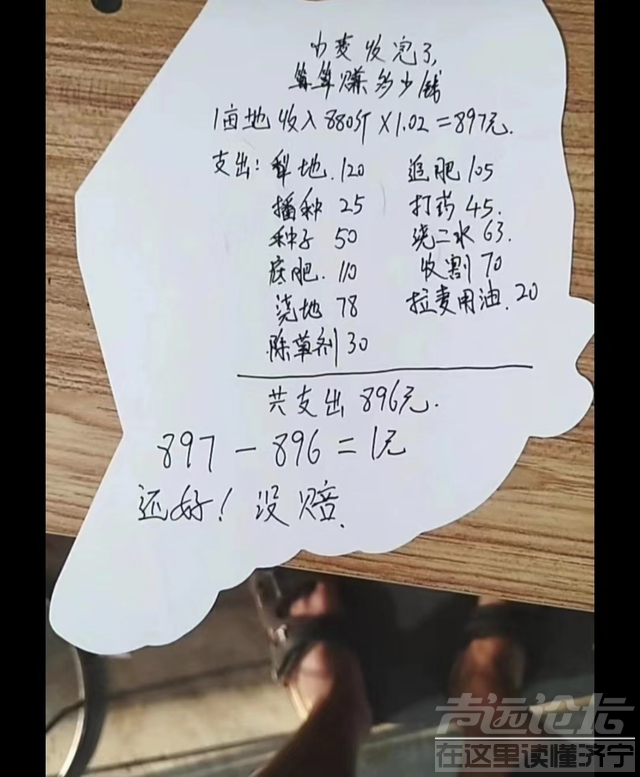 小麦收完了,
算算赚多少钱
1亩地收入880斤×1.02=897元.
支出: 犁地.120 追肥105
播种 25 打药45.
种子 50 浇二水63.
底肥.110 收割70
浇地 78 拉麦用油.20
除草剂30
共支出896元.
897-896=1元
还好!没赔.
声远论坛
在这里读懂济宁